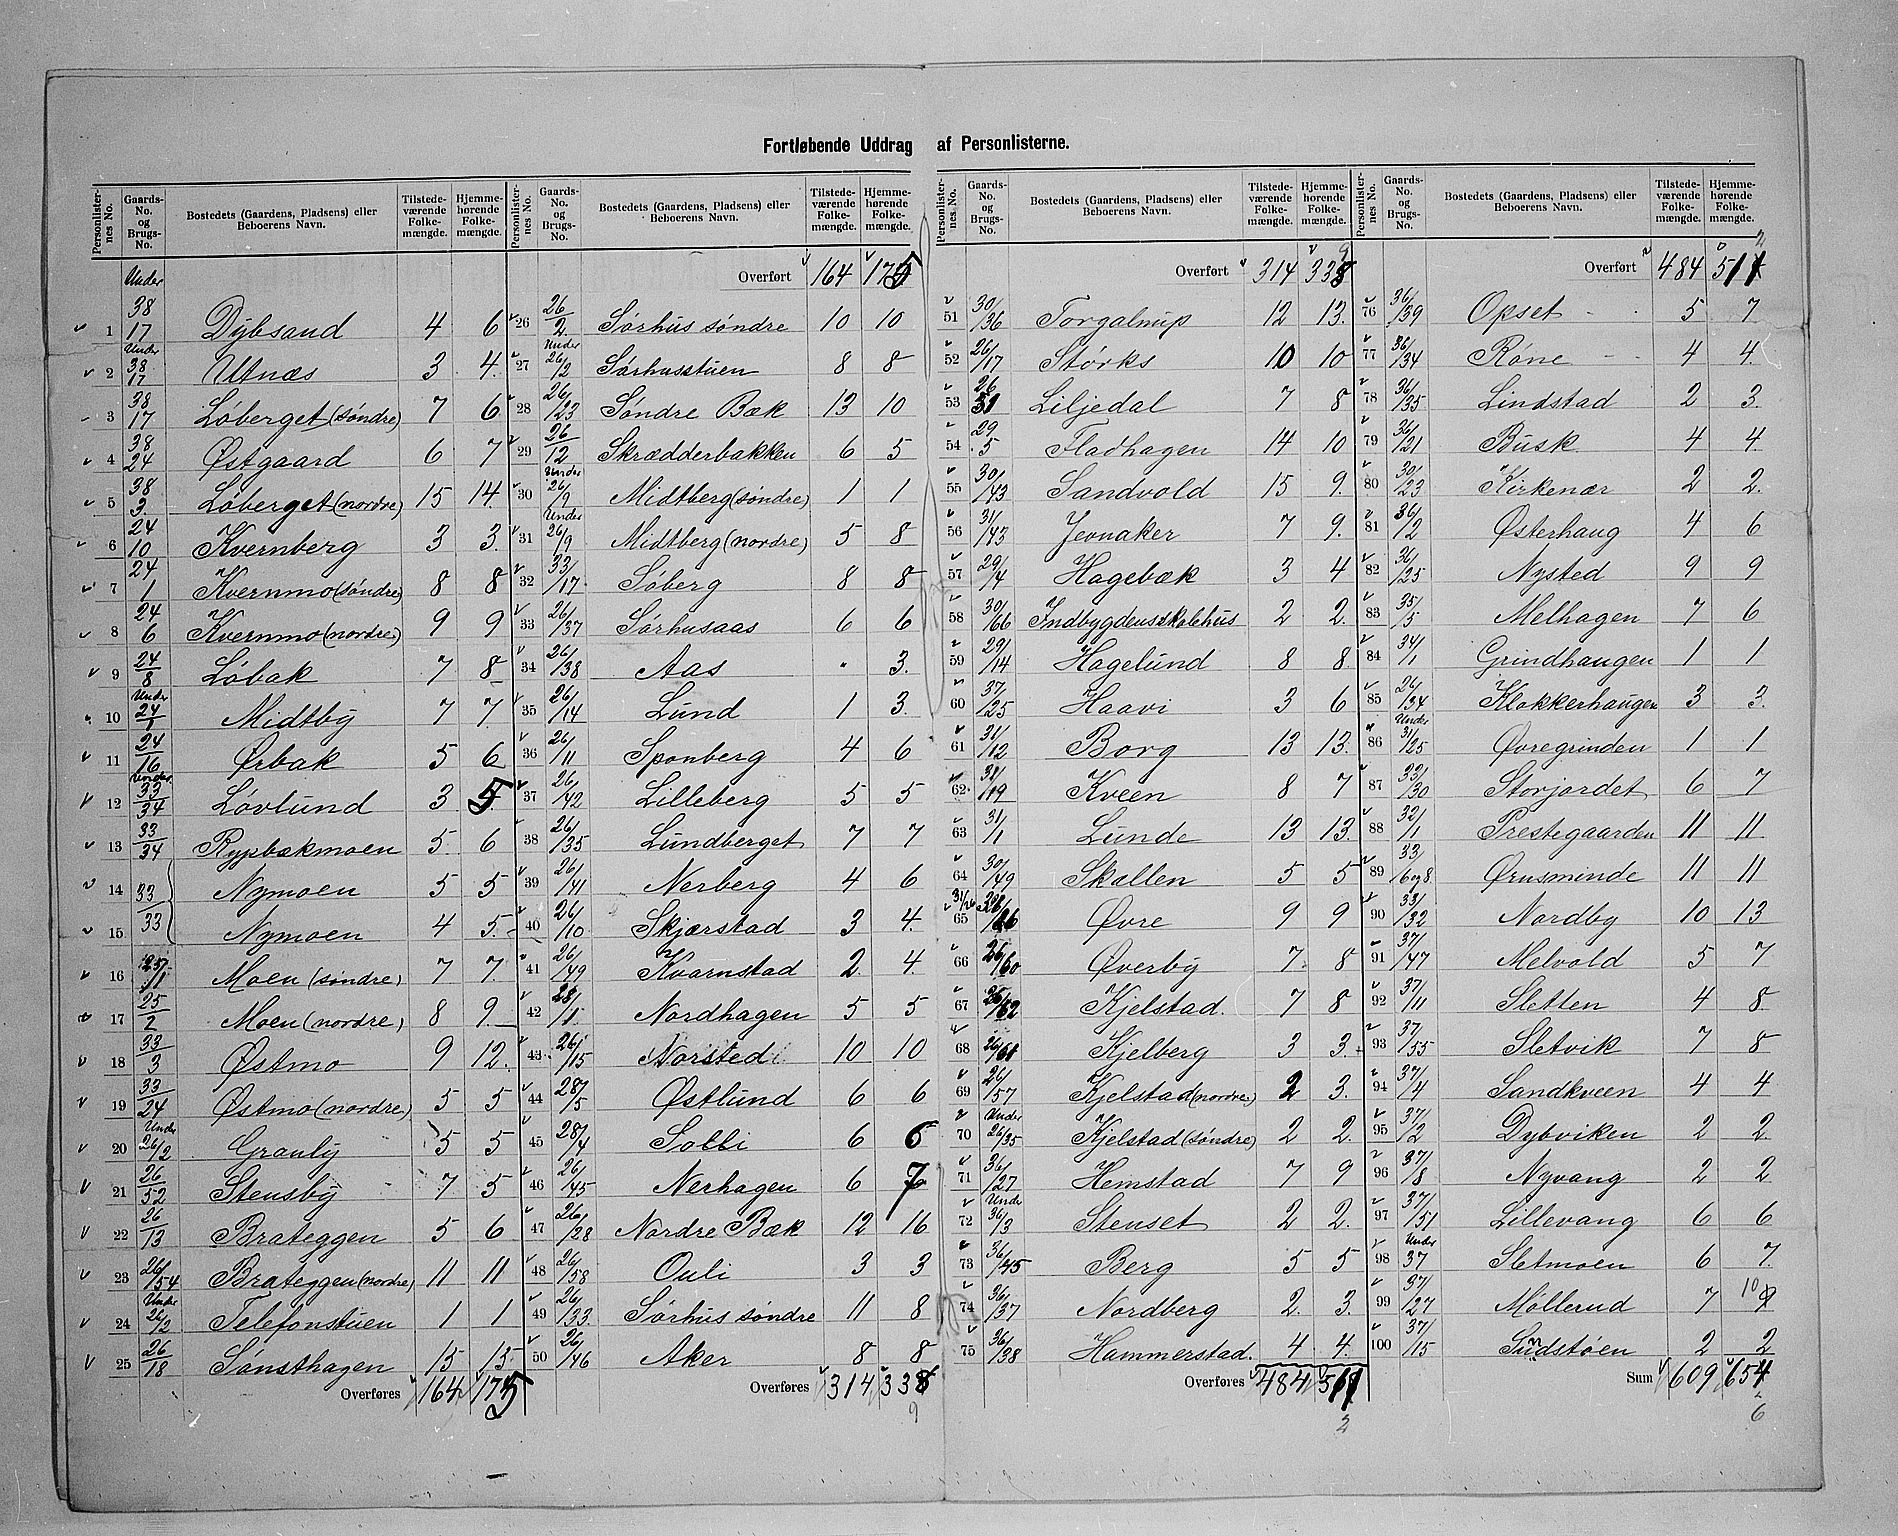 Fortløbende Uddrag af Personlisterne.
Personlister-nes No. Gaards-No. og Brugs-No. Bostedets (Gaardens, Pladsens) eller Beboerens Navn. Tilstede-værende Folke-mængde. Hjemme-hørende Folke-mængde.
1 Under 38/17 Dybsand 4 6
2 Under 38/17 Utnæs 3 4.
3 38/17 Løberget (søndre) 7 6
4 38/24 Østgaard 6 7
5 38/3. Løberget (nordre) 15 14.
6 24/10 Kvernberg 3 3.
7 24/1 Kvernmo (søndre) 8 8
8 24/6 Kvernmo (nordre) 9 9
9 24/8 Løbak 7 8
10 Under 24/1 Midtby 7 7.
11 24/16 Ørbak 5 6
12 Under 33/34 Løvlund 3 5
13 33/34 Rypbakmoen 5. 6
14 33/33 Nymoen 5 5
15 Nymoen 4 5.
16 25/1 Moen (søndre) 7 7.
17 25/2 Moen (nordre) 8 9.
18 33/3 Østmo 9 12.
19 33/24 Østmo (nordre) 5 5
20 Under 26/2 Granly 5 5
21 26/52 Stensby 7 5
22 26/13 Brateggen 5 6
23 26/54 Brateggen (nordre) 11 11
24 Under 26/2 Telefonstuen 1 1
25 26/18 Sønsthagen 15 15
Overføres 164 175
Personlister-nes No. Gaards-No. og Brugs-No. Bostedets (Gaardens, Pladsens) eller Beboerens Navn. Tilstede-værende Folke-mængde. Hjemme-hørende Folke-mængde.
Overført 164 175
26 26/2 Sørhus søndre 10 10
27 Under 26/2 Sørhusstuen 8 8
28 26/23 Søndre Bæk 13 10
29 26/12 Skrædderbakken 6 5
30 Under 26/9 Midtberg (søndre) 1 1
31 Under 26/9 Midtberg (nordre) 5 8
32 33/17 Søberg 8 8
33 26/37 Sørhusaas 6 6
34 26/38 Aas " 3.
35 26/14 Lund 1 3.
36 26/11 Sponberg 4 6
37 26/42 Lilleberg 5 5
38 26/35 Lundberget 7 7
39 26/41 Nerberg 4 6
40 26/10 Skjærstad 3 4.
41 26/49 Kvarnstad 2. 4.
42 28/1 Nordhagen 5 5
43 26/15 Norsted 10 10
44 28/5 Østlund 6 6
45 28/4 Solli 6 6
46 26/45 Nerhagen 6 7
47 26/28 Nordre Bæk 12 16
48 26/58 Ouli 3 3
49 26/33. Sørhus søndre 11 8
50 26/46 Aker 8 8
Overføres 314 338
9
Personlister-nes No. Gaards-No. og Brugs-No. Bostedets (Gaardens, Pladsens) eller Beboerens Navn. Tilstede-værende Folke-mængde. Hjemme-hørende Folke-mængde.
9
Overført 314 338
51 30/36 Torgalnup 12 13.
52 26/17 Størks 10 10
53 26/31 Liljedal 7 8
54 29/5 Fladhagen 14 10
55 30/43 Sandvold 15 9.
56 31/43 Jevnaker 7 9.
57 29/4 Hagebæk 3 4
58 30/66 Indbygdensskolehus 2 2.
59 29/14 Hagelund 8 8
60 37/25 Haavi 3 6
61 31/12 Borg 13 13.
62 31/19 Kveen 8 7
63 31/1 Lunde 13 13.
64 30/49 Skallen 5 5
65 31/26 Øvre 9 9
66 26/60 Øverby 7 8
67 26/62 Kjelstad. 7 8
68 26/61 Kjelberg 3 3.
69 26/57 Kjelstad (nordre) 2 3.
70 Under 26/35 Kjelstad (søndre) 2 2.
71 36/27 Hemstad 7 9
72 Under 36/3 Stenset 2 2.
73 36/45 Berg 5 5
74 36/37 Nordberg 2. 3.
75 36/38 Hammerstad. 4 4.
Overføres 484 511
2
Personlister-nes No. Gaards-No. og Brugs-No. Bostedets (Gaardens, Pladsens) eller Beboerens Navn. Tilstede-værende Folke-mængde. Hjemme-hørende Folke-mængde.
2
Overført 484 511
76 36/39 Opset 5 7
77 36/34 Røne 4 4.
78 36/35 Lindstad 2 3.
79 36/21 Busk 4 4.
80 30/23 Kirkenær 2 2.
81 36/2 Østerhaug 4 6
82 36/25 Nysted 9 9
83 35/5 Melhagen 7 6
84 34/1 Grindhaugen 1 1
85 26/34 Klokkerhaugen 3 3.
86 Under 31/25 Øvregrinden 1 1
87 33/30 Storjordet 6 7
88 32/1 Prestegaarden 11 11
89 33/6 og 8 Ørusminde 11 11
90 33/32 Nordby 10 13
91 37/47 Melvold 5 7
92 37/11 Sletten 4 8
93 37/55 Sletvik 7 8
94 37/4 Sandkveen 4 4
95 37/2 Dybviken 2 2.
96 37/8 Nyvang 2 2
97 37/51 Lillevang 6 6
98 Under 37 Sletmoen 6 7.
99 37/27 Møllerud 7 10 9
100 37/15 Sudstøen 2 2
Sum 609 654
6